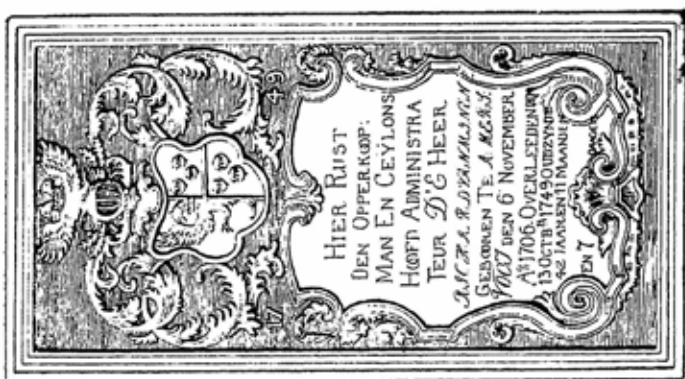 17 49
HIER RUST
DEN OPPERKOOP:
MAN EN CEYLONS
HOOFT ADMINISTRA
TEUR D'E HEER
GEBOOREN TE A. MERS.
VOORT DEN 6 NOVEMBER
Aº 1706. OVERLEEDEN DEN
13 OCTBR 1749 OUD ZYNDE
42 IAAREN 11 MAANDEN
EN 7